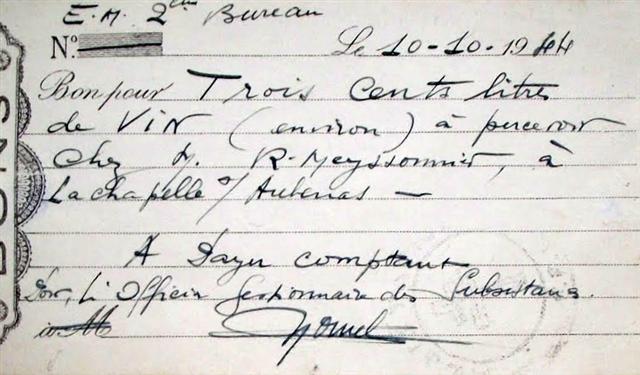 E.M. 2em Bureau
N°. Le 10-10-1944
Bon pour Trois Cents litres
de Vin (environ) à percevoir
chez M. R. Meyssonnier, à
Lachapelle s/ Aubenas —
A payer comptant
Pour, L'Officier Gestionnaire des Subsistances.
BONS